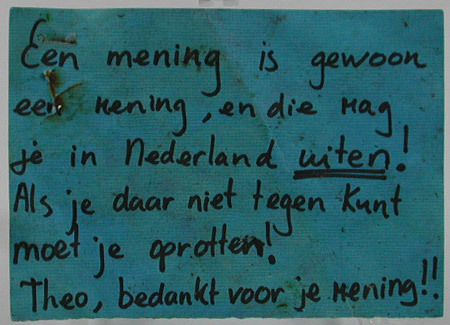 Een mening is gewoon
een mening, en die mag
je in Nederland uiten!
Als je daar niet tegen kunt
moet je oprotten!
Theo, bedankt voor je mening!!